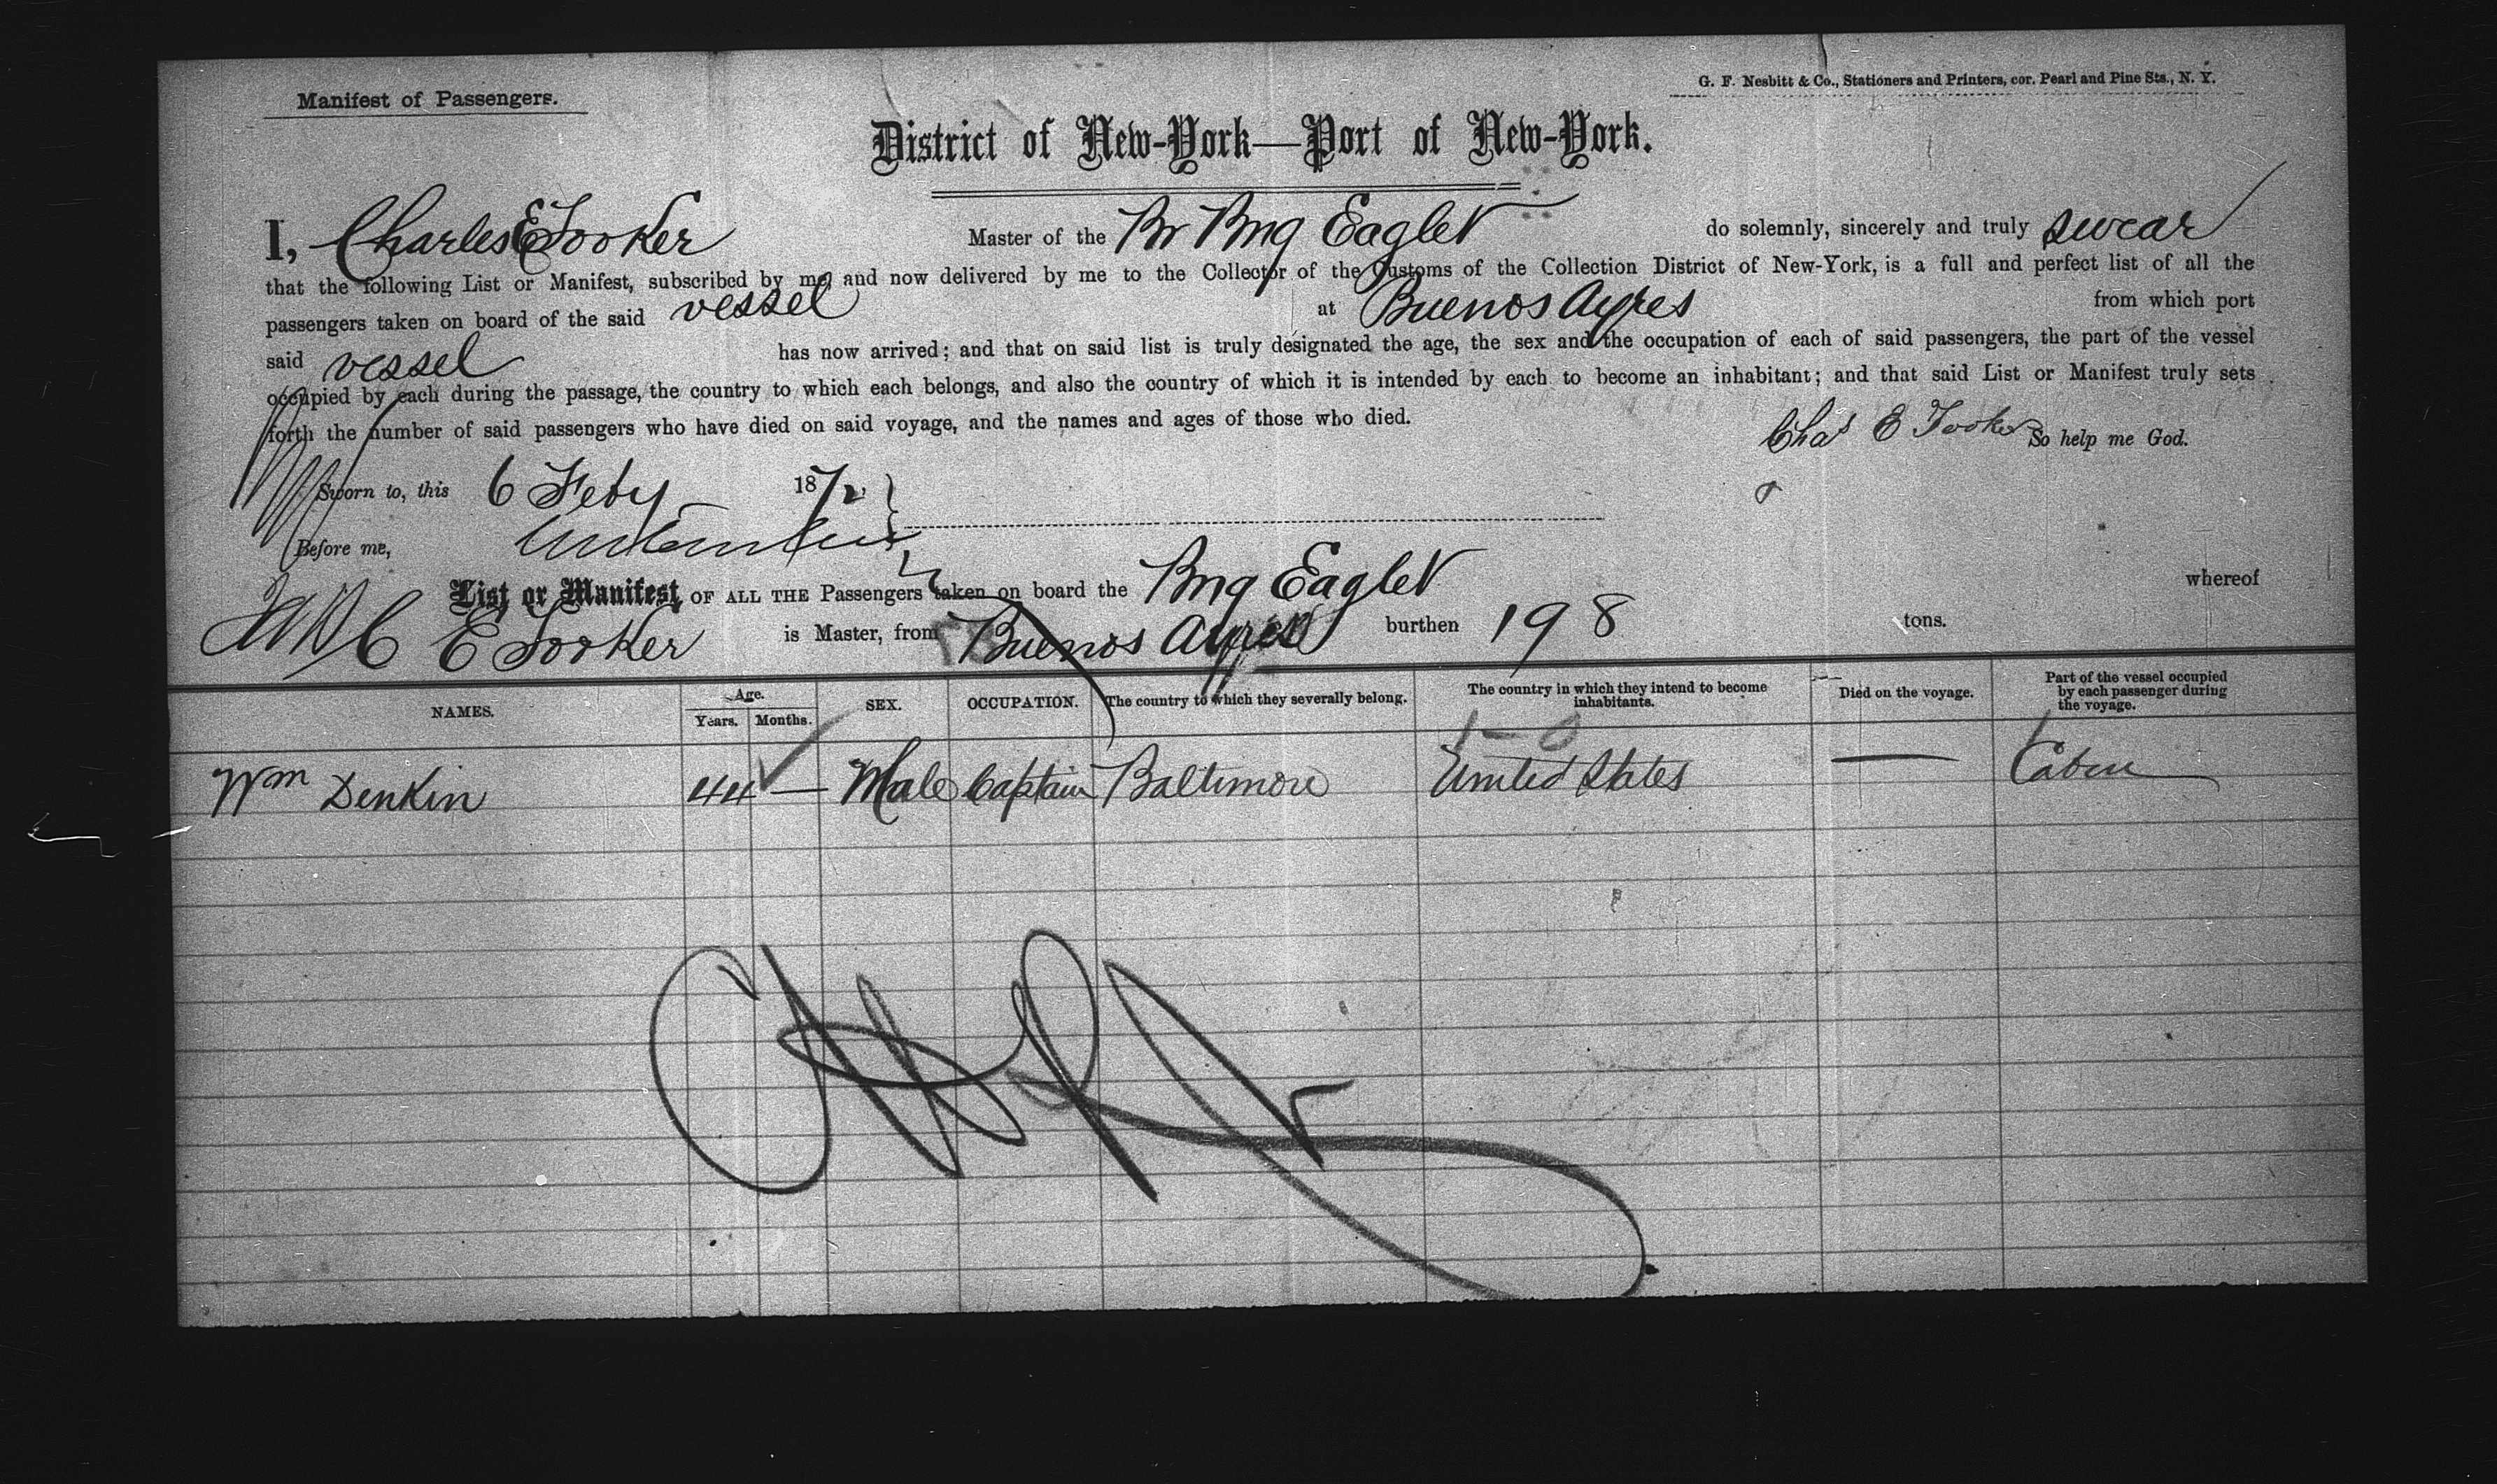 Manifest of Passengers.
G. F. Nesbitt & Co., Stationers and Printers, cor. Pearl and Pine Sts., N. Y.
District of New-York—Port of New-York.
I, Charles E Tooker Master of the Br Brig Eaglet do solemnly, sincerely and truly swear
that the following List or Manifest, subscribed by me, and now delivered by me to the Collector of the Customs of the Collection District of New-York, is a full and perfect list of all the
passengers taken on board of the said vessel at Buenos Ayres from which port
said vessel has now arrived; and that on said list is truly designated the age, the sex and the occupation of each of said passengers, the part of the vessel
occupied by each during the passage, the country to which each belongs, and also the country of which it is intended by each to become an inhabitant; and that said List or Manifest truly sets
forth the number of said passengers who have died on said voyage, and the names and ages of those who died.
Chas E Tooker So help me God.
Sworn to, this 6 Feby 1872,
Before me,
List or Manifest OF ALL THE Passengers taken on board the Brig Eaglet whereof
C E Tooker is Master, from Buenos Ayres burthen 198 tons.
NAMES. Age. Years. Months. SEX. OCCUPATION. The country to which they severally belong. The country in which they intend to become inhabitants. Died on the voyage. Part of the vessel occupied by each passenger during the voyage.
Wm Denkin 44 — Male Captain Baltimore United States — Cabin